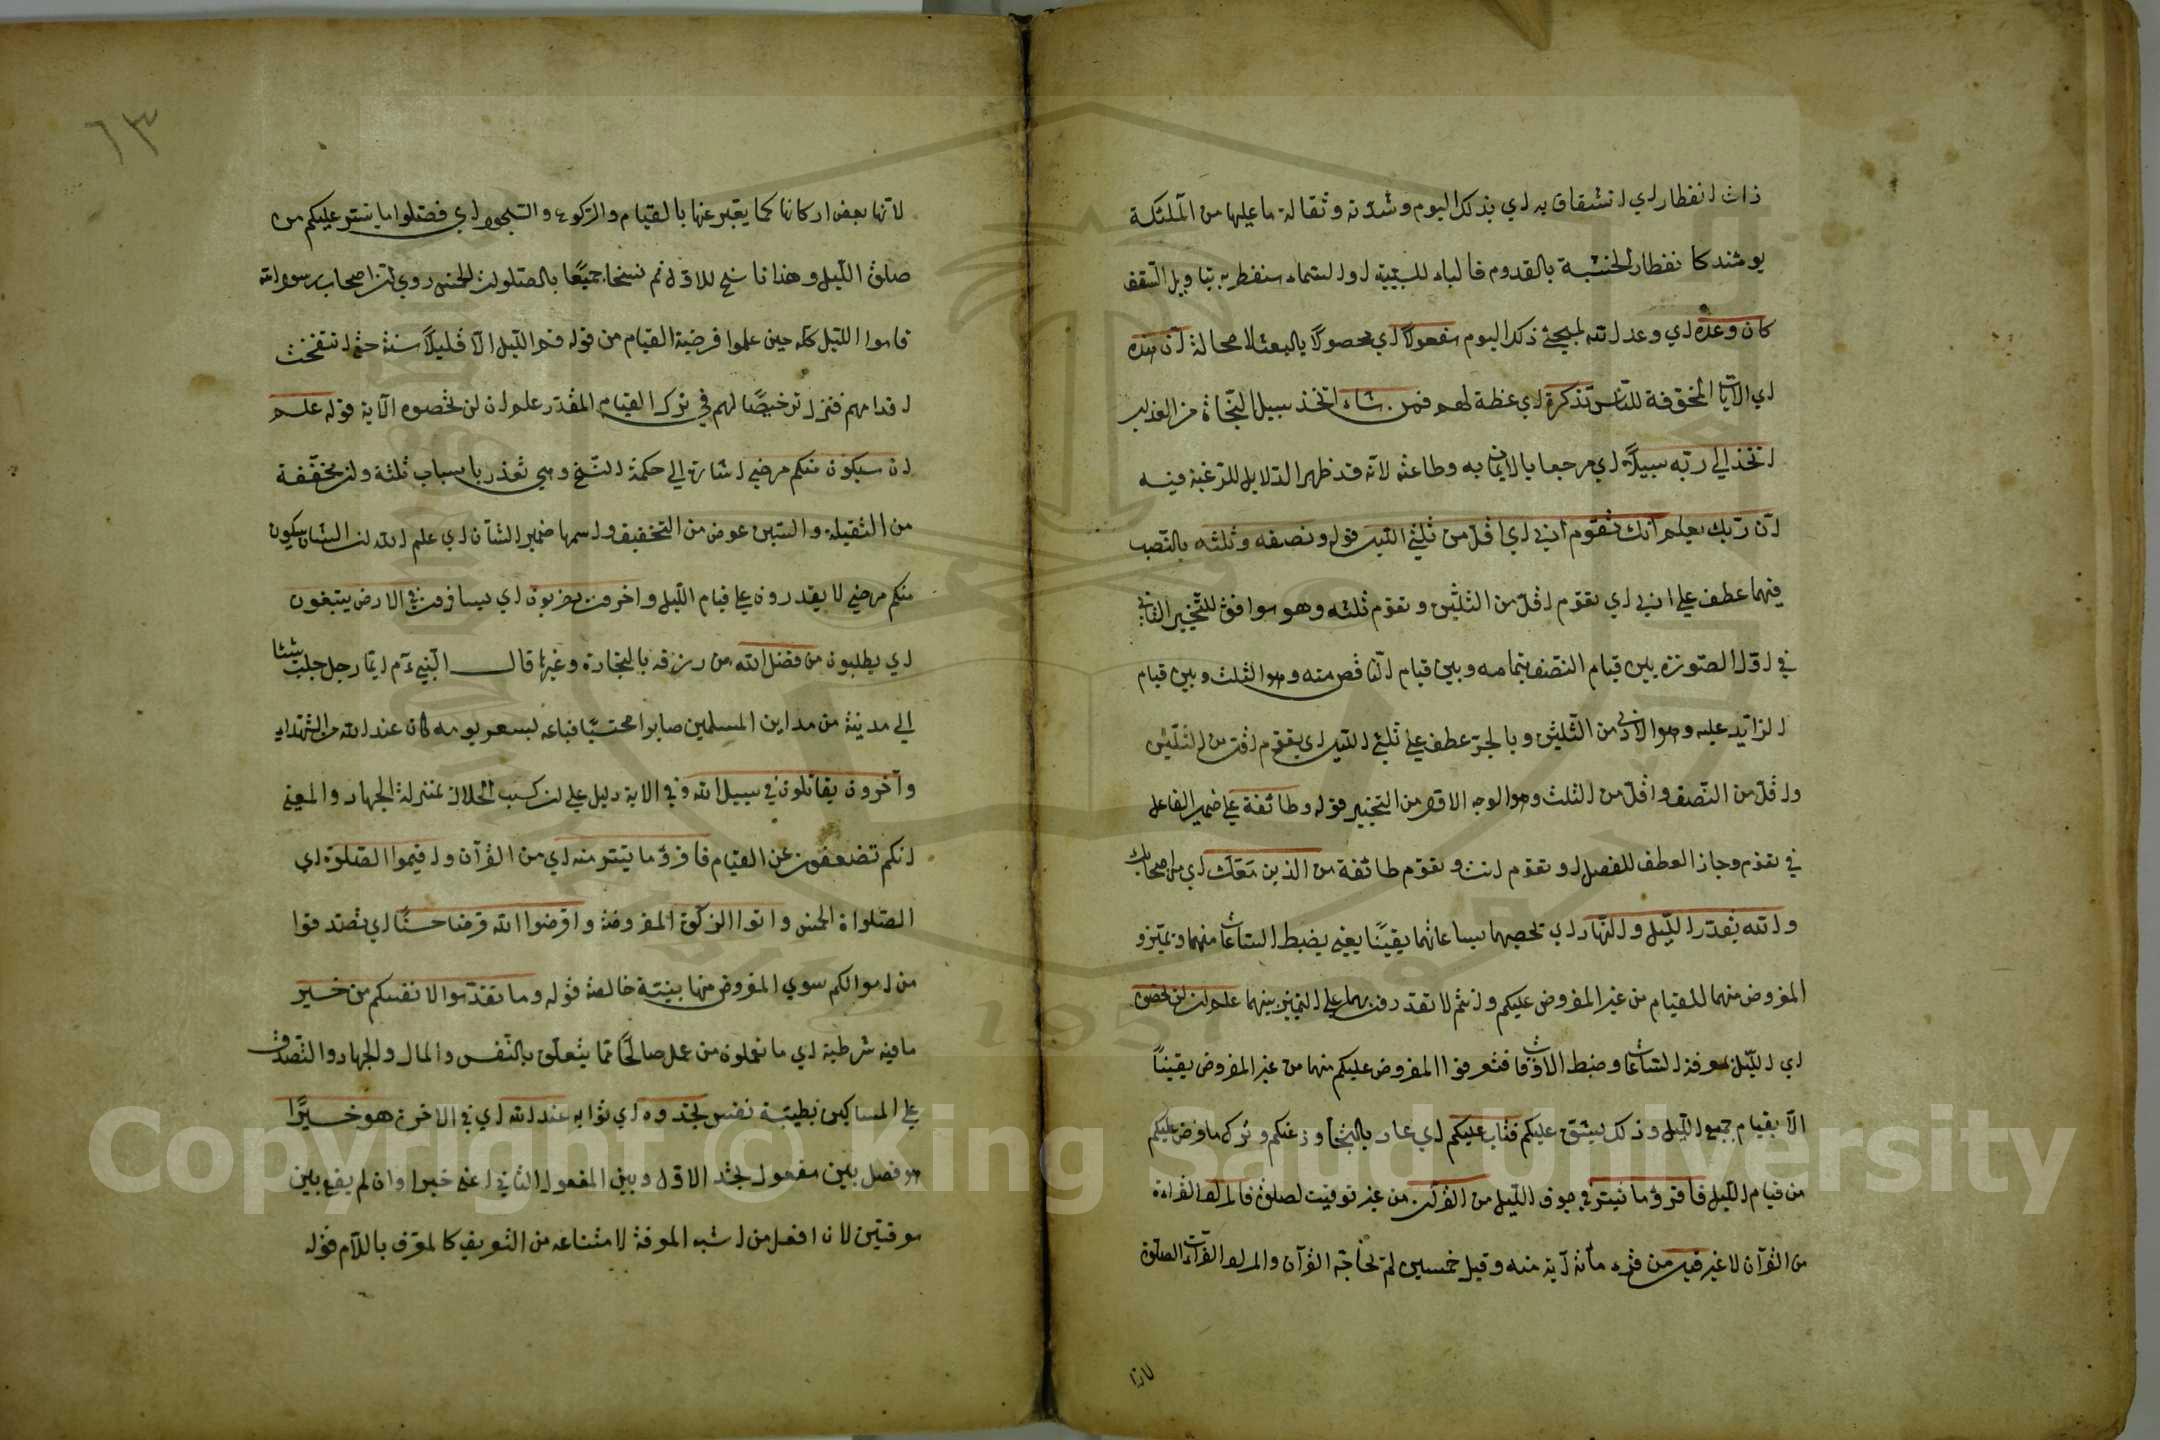 ذات انفطار اي انشقاق به اي بذلك اليوم وشدته وثقالة ما عليها من الملئكة
يومئذ كانفطار الخشبة بالقدوم فالباء للسببية او السماء منفطر به بتاويل السقف
كان وعده اي وعد الله لمجيئ ذلك اليوم مفعولا اي محصولا بالبعث لا محالة ان هذه
اي الآيات المخوفة للناس تذكرة اي عظة لهم فمن شاء اتخذ سبيل النجاة من العذاب
اتخذ الي ربه سبيلا اي مرجعا بالايمان به وطاعته لانه قد ظهر الدلايل للرغبة فيه
ان ربك يعلم انك تقوم ادني اي اقل من ثلثي الليل قوله ونصفه وثلثه بالنصب
فيهما عطف علي ادني اي تقوم اقل من الثلثين وتقوم ثلثه وهو موافق للتخيير الثاني
في اول الصورة بين قيام النصف بتمامه وبين قيام الناقص منه وهو الثلث وبين قيام
الزايد عليه وهو الادني من الثلثين وبالجر عطف علي ثلثي الليل اي يقوم اقل من الثلثين
واقل من النصف واقل من الثلث وهو الوجه الاول من التخيير قوله وطائفة علي ضمير الفاعل
في تقوم وجاز العطف للفصل او تقوم انت وتقوم طائفة من الذين معك اي من اصحابك
والله يقدر الليل والنهار اي يحصيهما بساعاتهما يقينا يعني يضبط الساعات منهما ويميز
المفروض منهما للقيام من غير المفروض عليكم وانتم لا تقدرون بهما علي التمييز بينهما علم ان لن تحصوه
اي الليل لمعرفة الساعات وضبط الاوقات فتعرفوا المفروض عليكم منها من غير المفروض يقينا
الا بقيام جميع الليل وذلك يشق عليكم فتاب عليكم اي عاد بالتجاوز عنكم وترك ما فرض عليكم
من قيام الليل فاقرؤا ما تيسر في جوف الليل من القرآن من غير توقيت لصلوة فالمراد القراءة
من القرآن لا غير قيل من قرء مائة آية منه وقيل خمسين لم يحاجه القرآن والمراد القرآءت الصلوة
لانها
٦٣
لانها بعض اركانها كما يعبر عنها بالقيام والركوع والسجود اي فصلوا ما تيسر عليكم من
صلوة الليل وهذا ناسخ للاول ثم نسخا جميعا بالصلوات الخمس روي ان اصحاب رسول الله
قاموا الليل كله حين علموا فرضية القيام من قوله قم الليل الا قليلا سنة حتي انتفخت
اقدامهم فنزل ترخيصا لهم في ترك القيام المقدر علم ان لن تحصوه الآية قوله علم
ان سيكون منكم مرضي اشارة الي حكمة النسخ وهي تعذر باسباب ثلثة وان مخففة
من الثقيلة والسين عوض من التخفيف واسمها ضمير الشأن اي علم الله ان الشان سيكون
منكم مرضي لا يقدرون علي قيام الليل واخرون يضربون اي يسافرون في الارض يبتغون
اي يطلبون من فضل الله من رزقه بالتجارة وغيرها قال النبي ءم ايما رجل جلب شيئا
الي مدينة من مداين المسلمين صابرا محتسبا فباعه بسعر يومه كان عند الله من الشهداء
وآخرون يقاتلون في سبيل الله وفي الاية دليل علي ان كسب الحلال بمنزلة الجهاد والمعني
انكم تضعفون عن القيام فاقرؤا ما تيسر منه اي من القرآن واقيموا الصلوة اي
الصلوات الخمس واتوا الزكوة المفروضة واقرضوا الله قرضا حسنا اي تصدقوا
من اموالكم سوي المفروض منها بنية خالصة قوله وما تقدموا لانفسكم من خير
ما فيه شرطية اي ما تعملون من عمل صالحا مما يتعلق بالنفس والمال والجهاد والتصدق
علي المساكين بطيبة نفس تجدوه اي ثوابه عند الله اي في الاخرة هو خيرا
هو فصل بين مفعول تجد الاول وبين المفعول الثاني اعني خيرا وان لم يقع بين
معرفتين لان افعل من اشبه المعرفة لامتناعه من التعريف كالمعرف باللام قوله